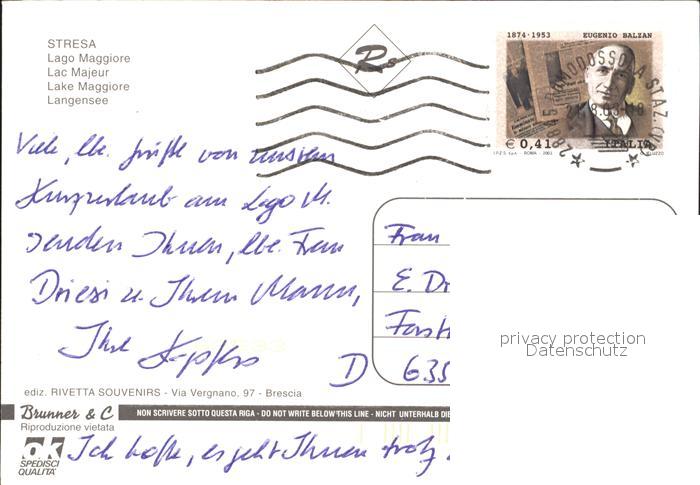 STRESA
Lago Maggiore
Lac Majeur
Lake Maggiore
Langensee
Rs
1874 · 1953 EUGENIO BALZAN
€ 0,41 ITALIA
I.P.Z.S. S.p.A. - ROMA - 2003
DOMODOSSOLA STAZ.
28845
Viele, lbe. Grüße von unserem
Kurzurlaub am Lago M.
senden Ihnen, lbe. Frau
Driesi u. Ihrem Mann,
Ihre
Frau
E. Dr
Forst
D 635
privacy protection
Datenschutz
ediz. RIVETTA SOUVENIRS - Via Vergnano, 97 - Brescia
Brunner & C NON SCRIVERE SOTTO QUESTA RIGA - DO NOT WRITE BELOW THIS LINE - NICHT UNTERHALB DIE
Riproduzione vietata
ok
SPEDISCI
QUALITA'
Ich hoffe, es geht Ihnen trotz